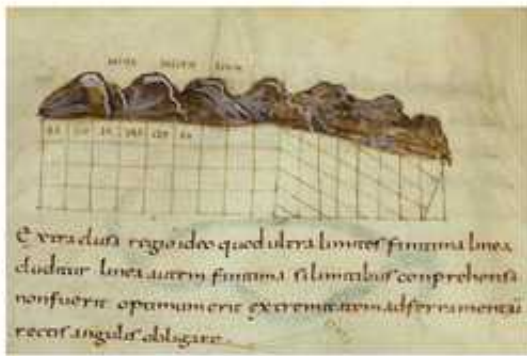 Extraclusi regio ideo quod ultra limites finitima linea
cluditur linea autem finitima si limitibus conprehensa
non fuerit optimum erit extremitatem ad ferramentū
rectis angulis obligare.